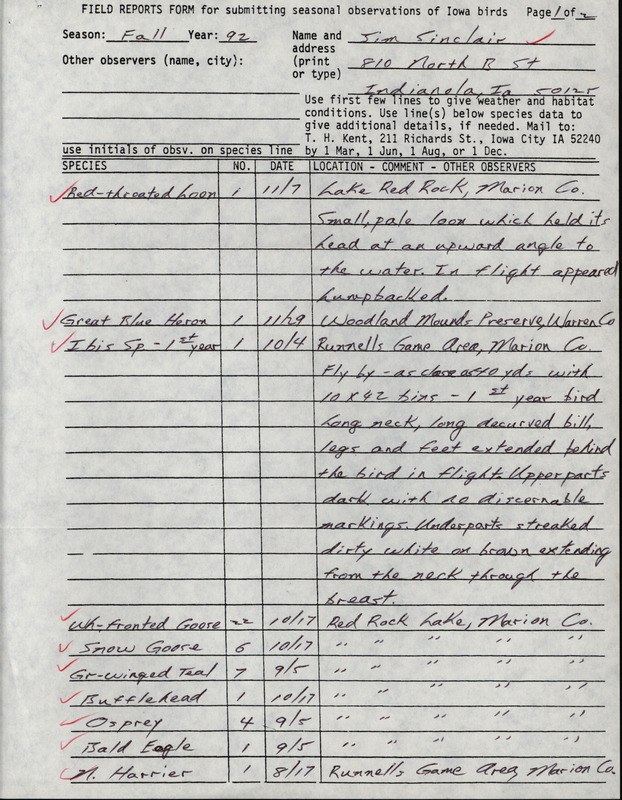 FIELD REPORTS FORM for submitting seasonal observations of Iowa birds Page 1 of 2
Season: Fall Year: 92 Name and Jim Sinclair
address
Other observers (name, city): (print 810 North B St
or type)
Indianola, Ia 50125
Use first few lines to give weather and habitat
conditions. Use line(s) below species data to
give additional details, if needed. Mail to:
T. H. Kent, 211 Richards St., Iowa City IA 52240
use initials of obsv. on species line by 1 Mar, 1 Jun, 1 Aug, or 1 Dec.
SPECIES NO. DATE LOCATION - COMMENT - OTHER OBSERVERS
Red-throated Loon 1 11/7 Lake Red Rock, Marion Co.
Small, pale loon which held its
head at an upward angle to
the water. In flight appeared
humpbacked.
Great Blue Heron 1 11/29 Woodland Mounds Preserve, Warren Co
Ibis Sp - 1st year 1 10/4 Runnells Game Area, Marion Co.
Fly by - as close as 40 yds with
10 x 42 bins - 1st year bird
Long neck, long decurved bill,
legs and feet extended behind
the bird in flight. Upperparts
dark with no discernable
markings. Underparts streaked
dirty white on brown extending
from the neck through the
breast.
Wh-fronted Goose 22 10/17 Red Rock Lake, Marion Co.
Snow Goose 6 10/17 " " " " "
Gr-winged Teal 7 9/5 " " " " "
Bufflehead 1 10/17 " " " " "
Osprey 4 9/5 " " " " "
Bald Eagle 1 9/5 " " " " "
N. Harrier 1 8/17 Runnells Game Area, Marion Co.